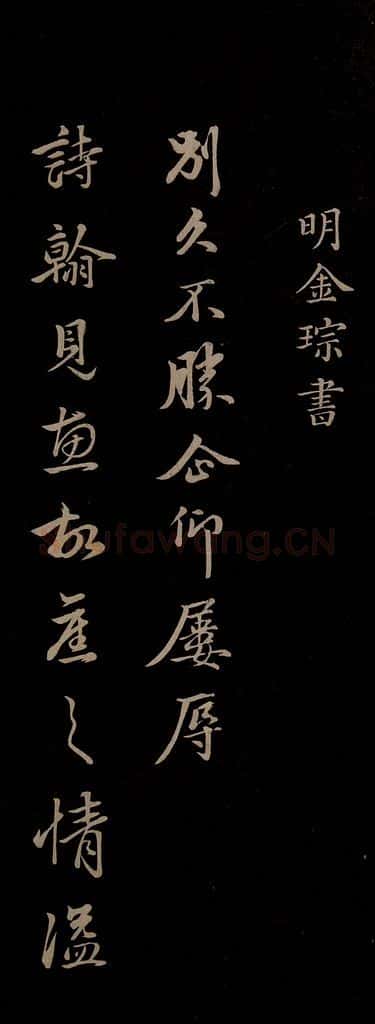 明金琮書
別久不勝企仰屢辱
詩翰見惠故舊之情溢
shufawang.CN